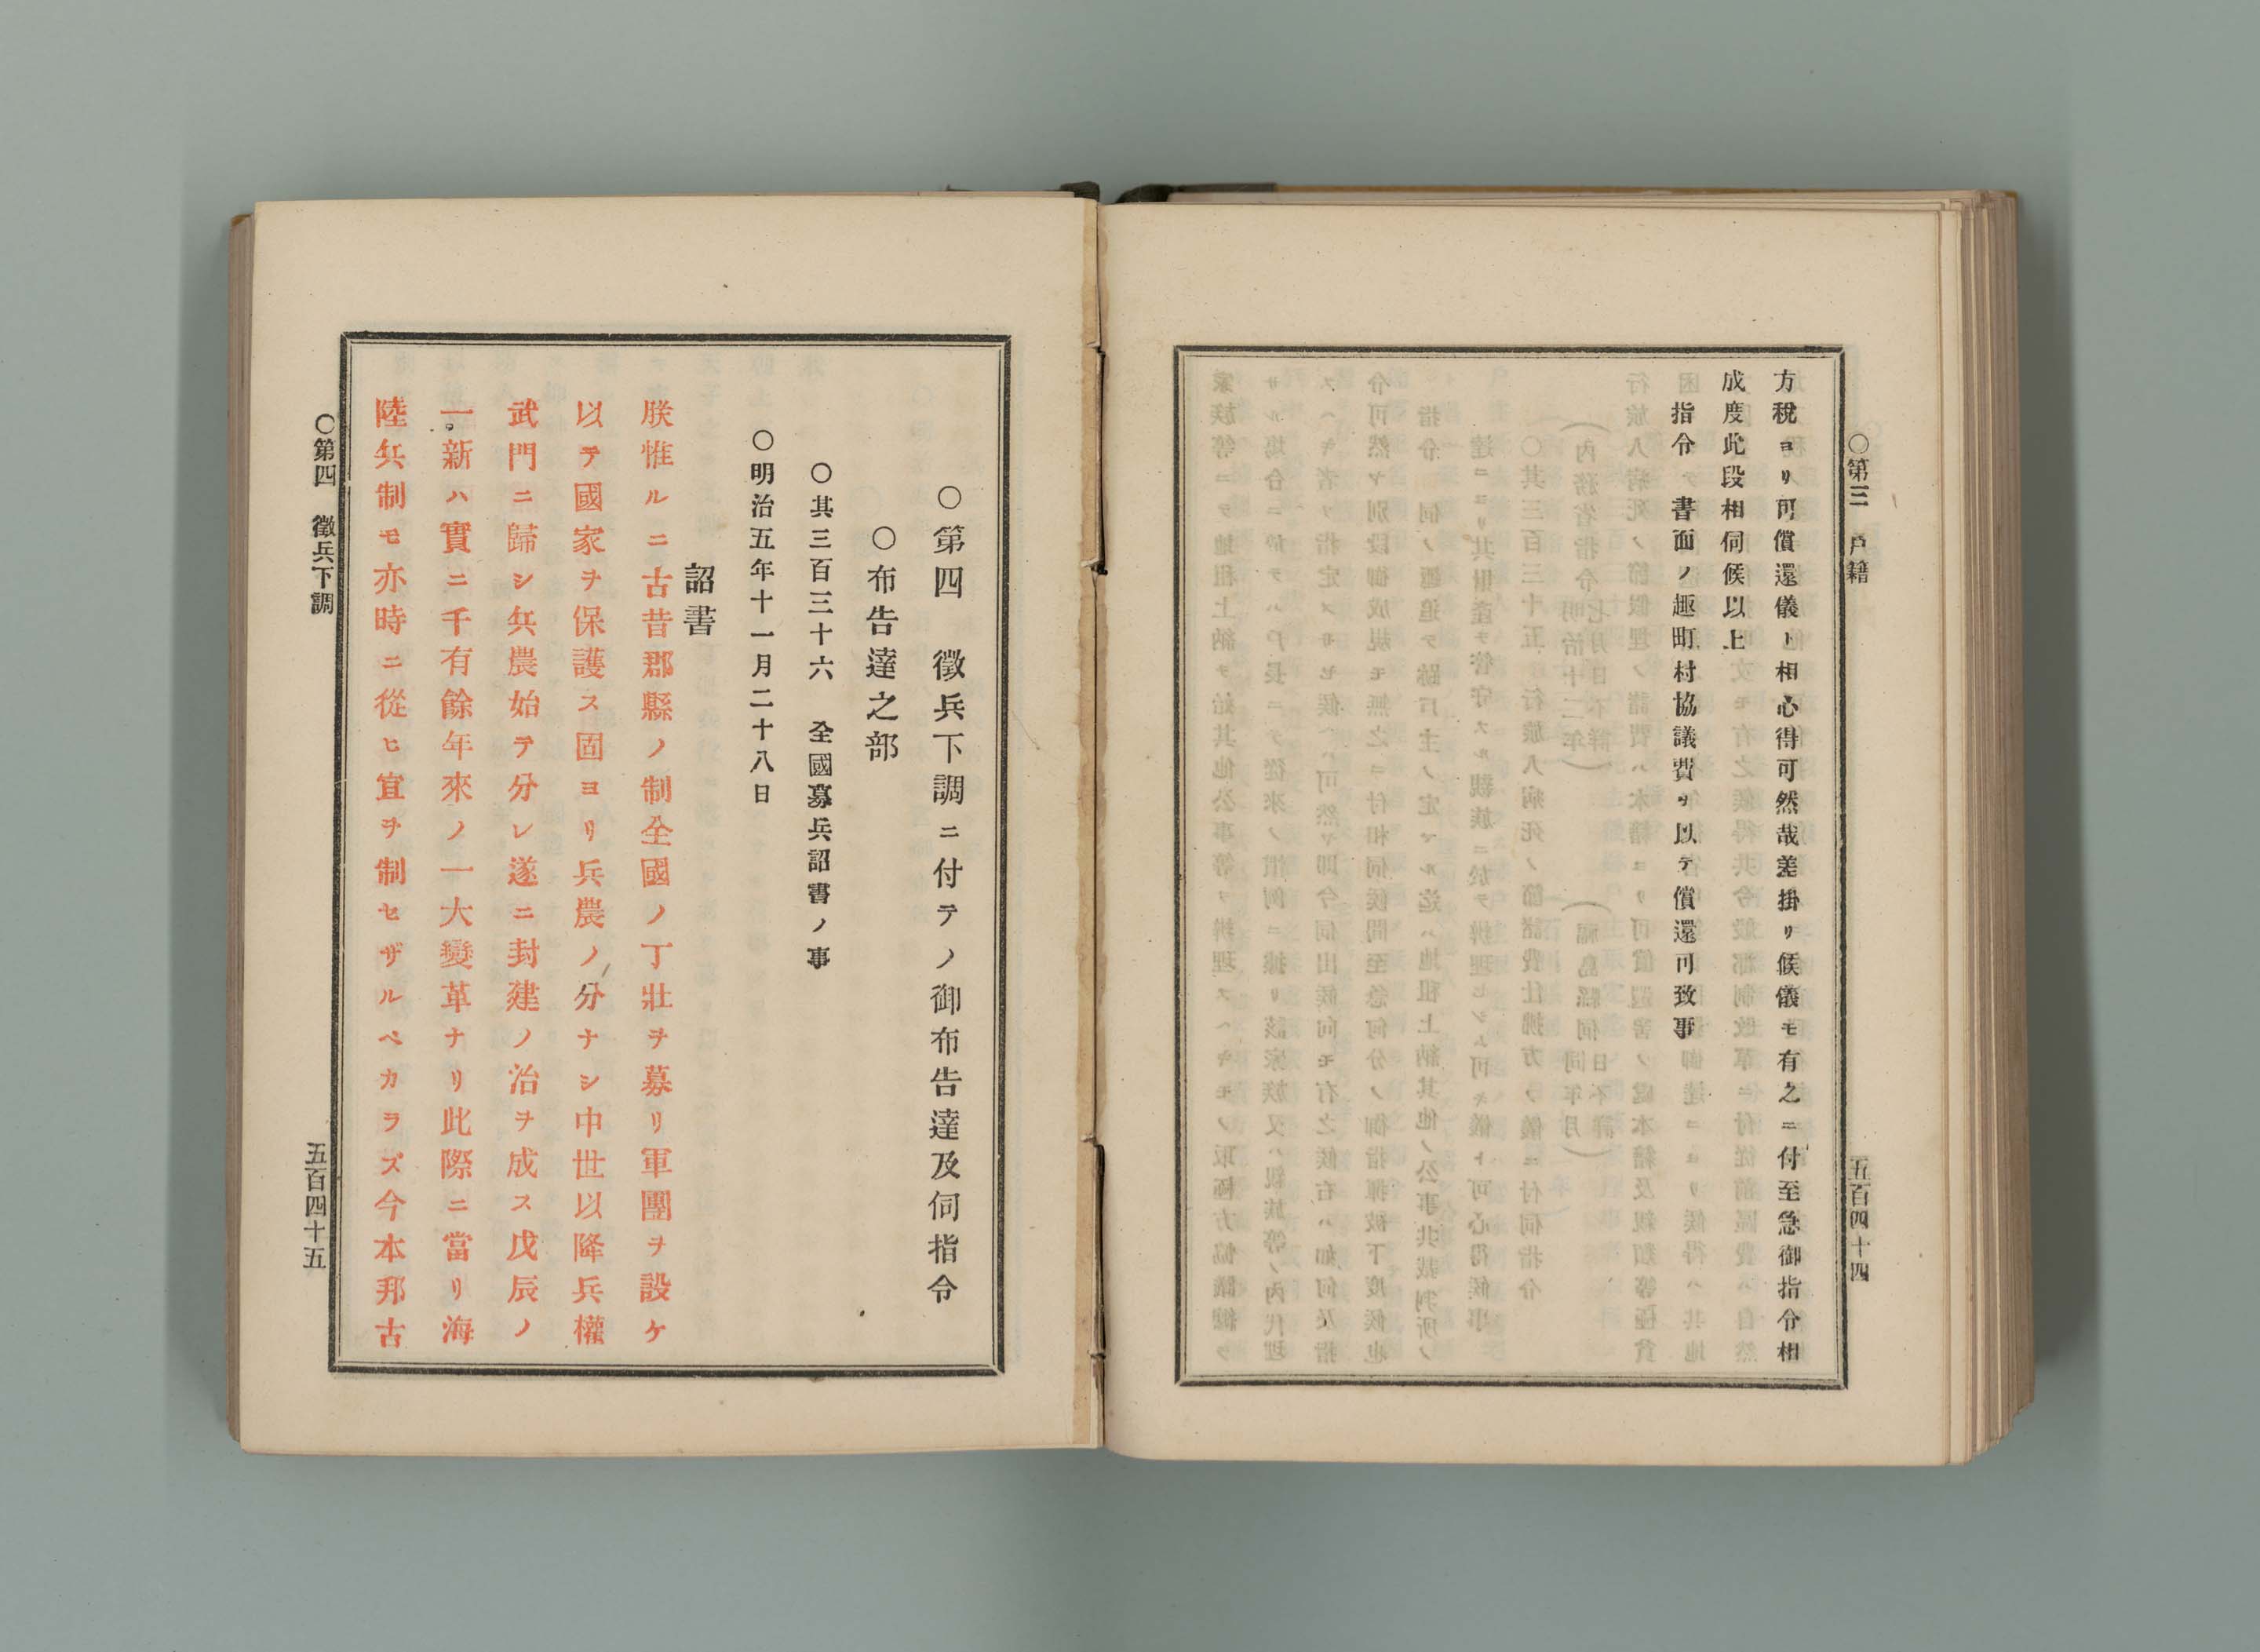 ○第三 戶籍
五百四十四
方稅ヨリ可償還儀ト相心得可然哉差掛リ候儀モ有之ニ付至急御指令相
成度此段相伺候以上
指令 書面ノ趣町村協議費ヲ以テ償還可致事
○第四 徵兵下調ニ付テノ御布告達及伺指令
○布告達之部
○其三百三十六 全國募兵詔書ノ事
○明治五年十一月二十八日
詔書
朕惟ルニ古昔郡縣ノ制全國ノ丁壯ヲ募リ軍團ヲ設ケ
以テ國家ヲ保護ス固ヨリ兵農ノ分ナシ中世以降兵權
武門ニ歸シ兵農始テ分レ遂ニ封建ノ治ヲ成ス戊辰ノ
一新ハ實ニ千有餘年來ノ一大變革ナリ此際ニ當リ海
陸兵制モ亦時ニ從ヒ宜ヲ制セザルベカラズ今本邦古
○第四 徵兵下調
五百四十五